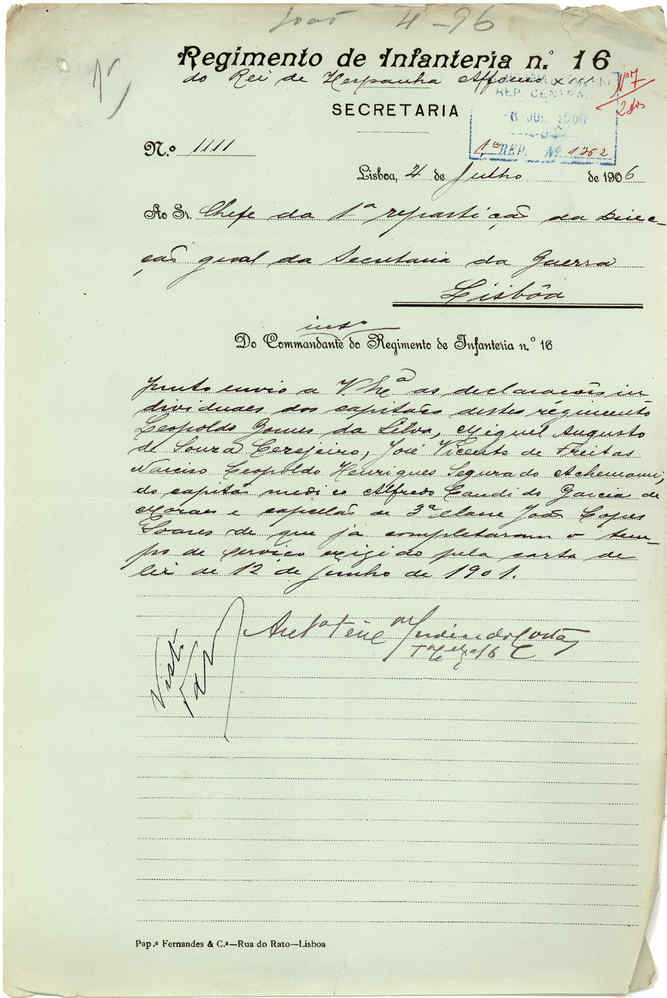 4-96
Regimento de Infanteria n.º 16
do Rei de Hespanha Affonso XIII
Nº 7
REP. CENTRAL
SECRETARIA
N.º 1111
1ª REP. Nº 1352
Lisboa, 4 de Julho de 1906
Ao Sr. Chefe da 1ª repartição da Direc-
ção geral da Secretaria da Guerra
Lisbôa
intº
Do Commandante do Regimento de Infanteria n.º 16
Junto envio a V. Exª as declarações in-
dividuaes dos capitães deste regimento
Leopoldo Gomes da Silva, Miguel Augusto
de Souza Cerejeiro, José Vicente de Freitas
Narciso Leopoldo Henriques Segurado Achemann,
do capitão medico Alfredo Candido Garcia de
Moraes e capellão de 3ª classe João Lopes
Soares de que já completaram o tem-
po de serviço exigido pela carta de
lei de 12 de Junho de 1901.
Visto
Pap.ª Fernandes & C.ª—Rua do Rato—Lisboa